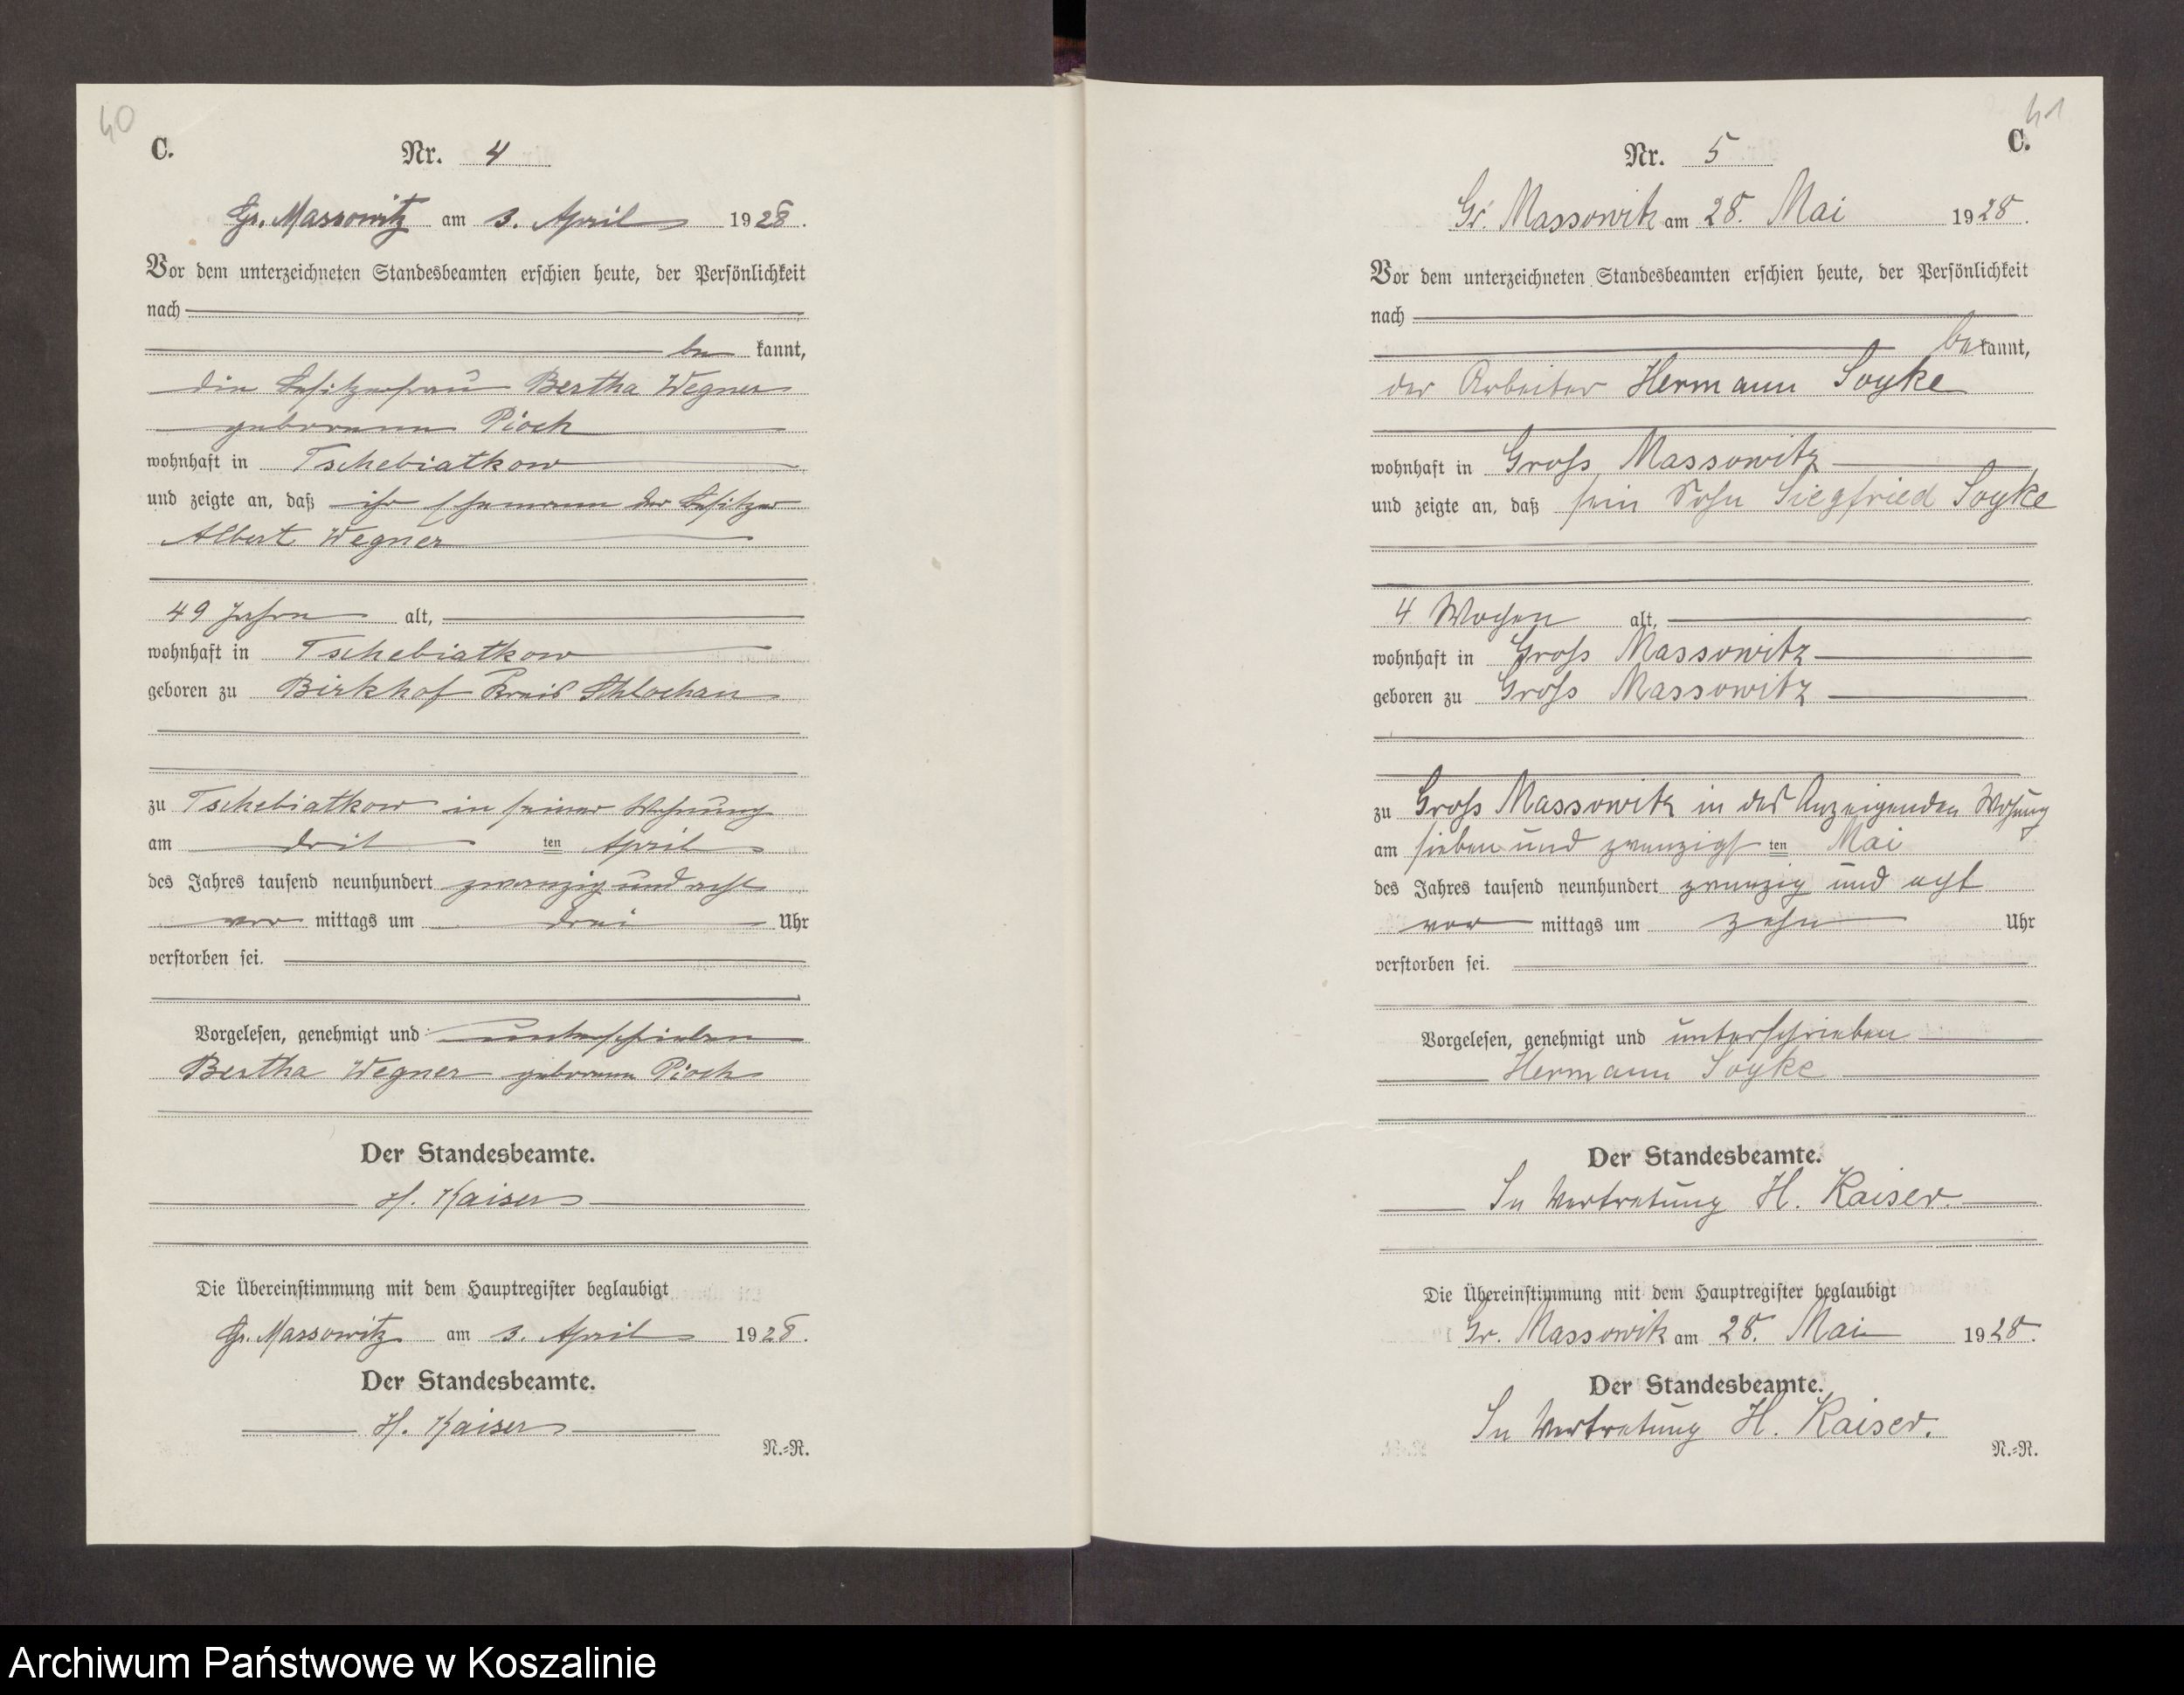 40
C.
Nr. 4
Gr. Massowitz am 3. April 1928.
Vor dem unterzeichneten Standesbeamten erschien heute, der Persönlichkeit
nach
be kannt,
die Besitzerfrau Bertha Wegner
geborene Pioch
wohnhaft in Tschebiatkow
und zeigte an, daß ihr Ehemann der Besitzer
Albert Wegner
49 Jahre alt,
wohnhaft in Tschebiatkow
geboren zu Birkhof Kreis Schlochau
zu Tschebiatkow in seiner Wohnung
am drit ten April
des Jahres tausend neunhundert zwanzig und acht
vor mittags um drei Uhr
verstorben sei.
Vorgelesen, genehmigt und unterschrieben
Bertha Wegner geborene Pioch
Der Standesbeamte.
H. Kaiser
Die Übereinstimmung mit dem Hauptregister beglaubigt
Gr. Massowitz am 3. April 1928.
Der Standesbeamte.
H. Kaiser
N.=R.
41
C.
Nr. 5
Gr. Massowitz am 28. Mai 1928.
Vor dem unterzeichneten Standesbeamten erschien heute, der Persönlichkeit
nach
be kannt,
der Arbeiter Hermann Soyke
wohnhaft in Gross Massowitz
und zeigte an, daß sein Sohn Siegfried Soyke
4 Wochen alt,
wohnhaft in Gross Massowitz
geboren zu Gross Massowitz
zu Gross Massowitz in des Anzeigenden Wohnung
am sieben und zwanzigs ten Mai
des Jahres tausend neunhundert zwanzig und acht
vor mittags um zehn Uhr
verstorben sei.
Vorgelesen, genehmigt und unterschrieben
Hermann Soyke
Der Standesbeamte.
In Vertretung H. Kaiser.
Die Übereinstimmung mit dem Hauptregister beglaubigt
Gr. Massowitz am 28. Mai 1928.
Der Standesbeamte.
In Vertretung H. Kaiser.
N.=R.
Archiwum Państwowe w Koszalinie